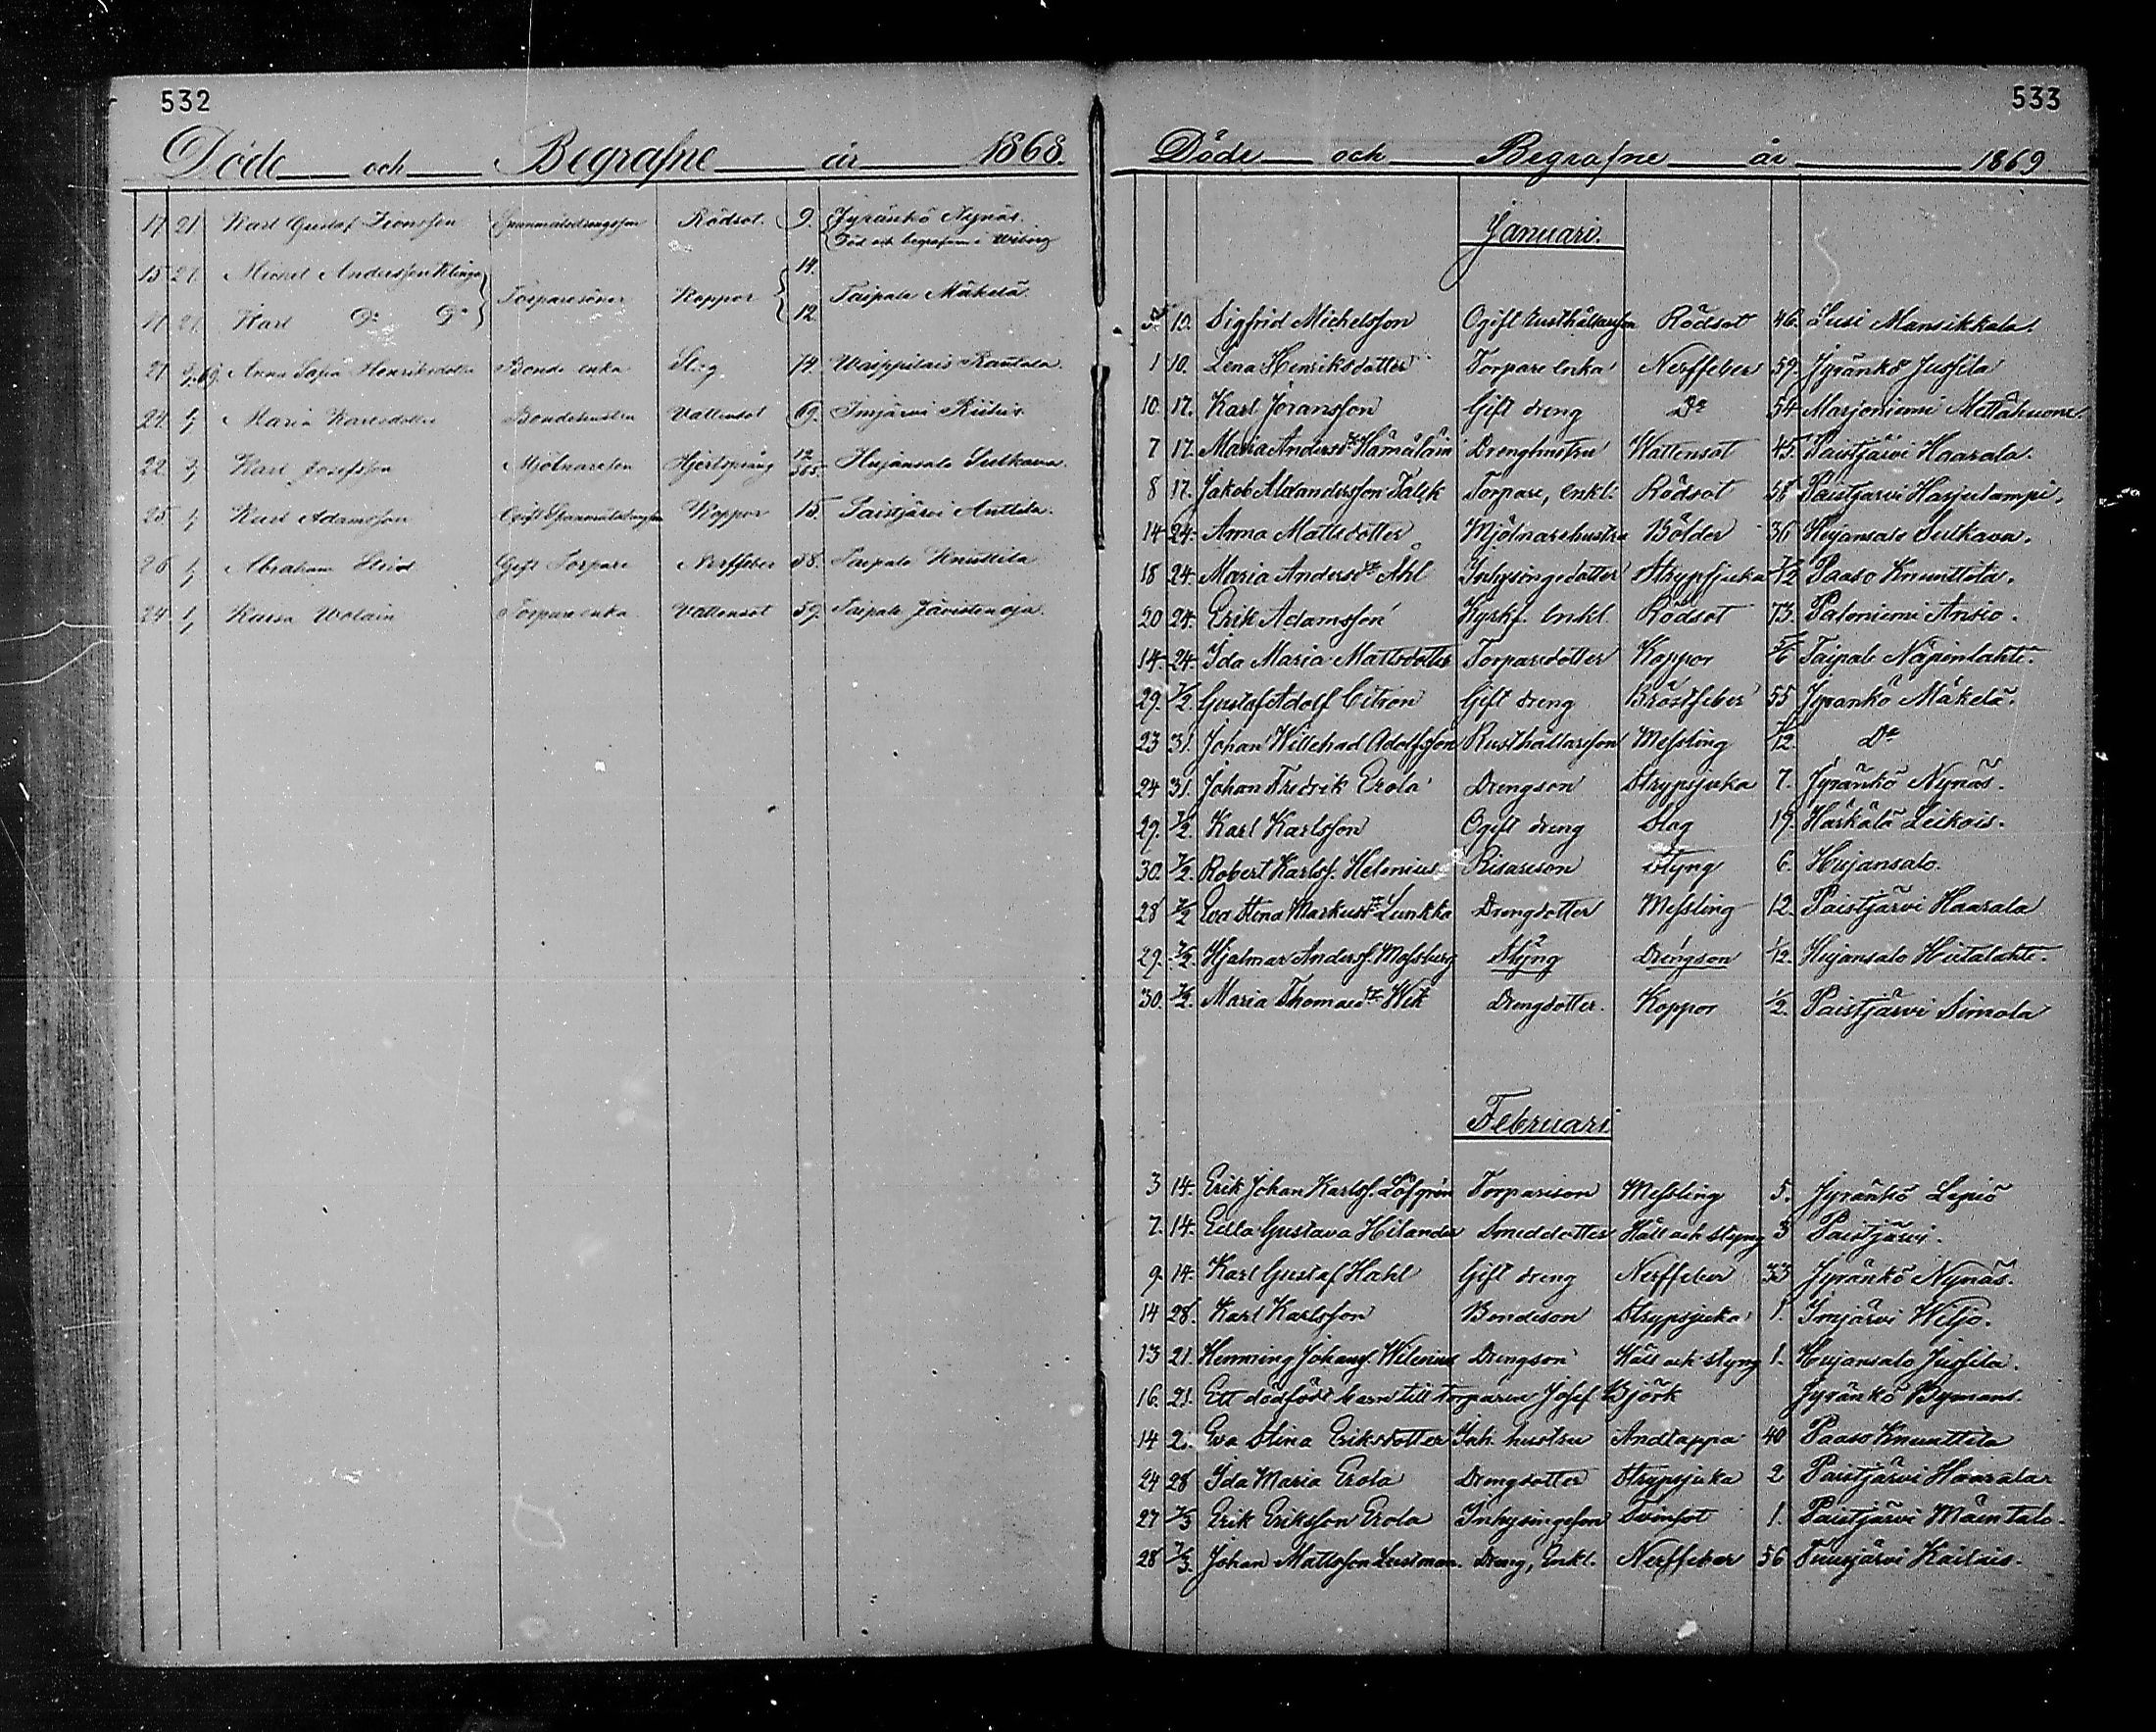 532
Döde och Begrafne år 1868.
17 21 Karl Gustaf Rödsot. 9. Jyränkö Nynäs.
Död och begrafven i Wiborg
15 27. Michel Andersson Klinga 14.
Torparesöner Koppor Taipale Mäkelä.
11 27. Karl Do Do 12.
21 Anna Sofia Henriksdotter Bonde enka Slag 74. Rantala.
24 Maria Karlsdotter Bondehustru Vattensot 69. Imjärvi
22 Karl Josefsson Mjölnareson Hjertsprång 12/365 Hujansalo Sulkava.
25 Karl Adamsson Koppor 15. Paistjärvi Anttila.
26 Abraham Gift Torpare Nerffeber 38. Taipale Knuttila
24 Kaisa Torpare enka Vattensot 59. Taipale
533
Döde och Begrafne år 1869.
Januari.
5. 10. Sigfrid Michelsson Ogift Rusthållaresson Rödsot 46. Lusi Mansikkala.
1 10. Lena Henriksdotter Torpare enka Nerffeber 59. Jyränkö Jussila
10. 17. Karl Jöransson Gift dreng Do 54 Marjoniemi
7 17. Maria Andersdr Hämäläin Drenghustru Wattensot 45. Paistjärvi Haarala.
8 17. Jakob Alexandersson Falck Torpare, Enkl. Rödsot 58 Paistjärvi Harjulampi.
14 24. Anna Mattsdotter Mjölnarehustru Bölder 36 Hujansalo Sulkava.
18 24. Maria Andersdr Åhl Inhysingsdotter Strypsjuka Paaso Knuuttila.
20 24. Erik Adamsson Kyrkf. Enkl. Rödsot 73. Paloniemi Ansio.
14 24. Ida Maria Mattsdotter Torparedotter Koppor 5/6 Taipale Näpinlahti.
29. 7/2. Gustaf Adolf Citron Gift dreng Bröstfeber 55 Jyränkö Mäkelä.
23 31. Johan Willehad Adolfsson Rusthållarsson Messling Do
24 31. Johan Fredrik Erola Drengson Strypsjuka 7. Jyränkö Nynäs.
29. 7/2. Karl Karlsson Ogift dreng Slag 19. Härkälä Leikois.
30. 7/2. Robert Karlss. Helenius Risareson Styng 6. Hujansalo.
28 7/2 Eva Stina Markusdr Lunkka Drengdotter Messling 12. Paistjärvi Haarala
29. 7/2. Hjalmar Anderss. Mossberg Styng Drengson 1/2. Hujansalo Hietalahti.
30. 7/2. Maria Thomasdr Wek Drengdotter. Koppor 1/2. Paistjärvi Simola
Februari
3 14. Erik Johan Karlss. Löfgren Torpareson Messling 5. Jyränkö Lepiö
7. 14. Edla Gustava Hilander Smeddotter Håll och styng 3 Paistjärvi.
9. 14. Karl Gustaf Hahl Gift dreng Nerffeber 33 Jyränkö Nynäs.
14 28. Karl Karlsson Bondeson Strypsjuka 1. Imjärvi Wiljo.
13 21. Hemming Johanss. Wilenius Drengson Håll och styng 1. Hujansalo Jussila.
16. 21. Ett dödfödt barn till torparen Josef Björk Jyränkö Bymans.
14 2. Eva Stina Eriksdotter Inh. hustru Andtäppa 40 Paaso Knuuttila
24 28 Ida Maria Erola Drengdotter Strypsjuka 2 Paistjärvi Haarala
27 7/3 Erik Eriksson Erola Inhysingeson Tvinsot 1. Paistjärvi Mäentalo.
28 7/3. Johan Mattsson Lustman. Dreng, Enkl. Nerffeber 56 Tuusjärvi Kailais.